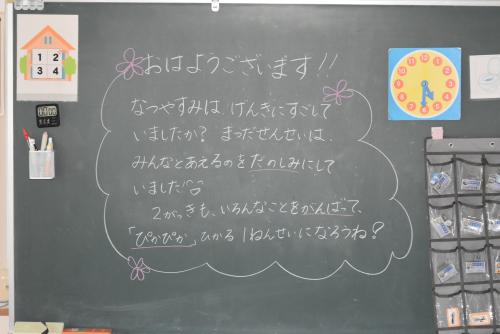 おはようございます!!
なつやすみは、げんきにすごして
いましたか? まつだせんせいは、
みんなとあえるのをたのしみにして
いました!
2がっきも、いろんなことをがんばって、
「ぴかぴか」ひかる1ねんせいになろうね?
1 2
3 4
12
1
2
3
4
5
6
7
8
9
10
11